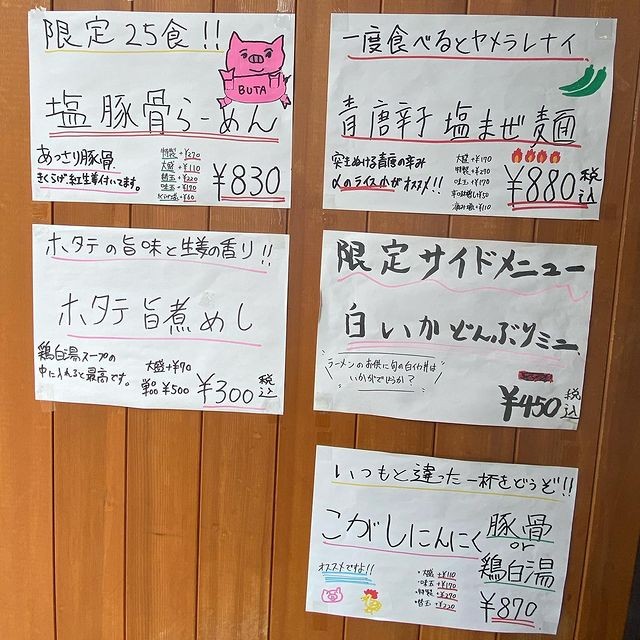 限定25食!!
BUTA
塩豚骨らーめん
あっさり豚骨
きくらげ、紅生姜付いてます。
特製+¥270
大盛+¥110
替玉+¥220
味玉+¥170
¥830
一度食べるとヤメラレナイ
青唐辛子塩まぜ麺
突きぬける青唐の辛み
〆のライス小がオススメ!!
大盛+¥170
特製+¥290
味玉+¥170
¥880
税込
ホタテの旨味と生姜の香り!!
ホタテ旨煮めし
鶏白湯スープの
中に入れると最高です。
大盛+¥70
単品 ¥500
¥300
税込
限定サイドメニュー
白いかどんぶりミニ
ラーメンのお供に旬の白イカ丼は
いかがでしょうか?
¥450
税込
いつもと違った一杯をどうぞ!!
こがしにんにく 豚骨
or
鶏白湯
オススメですよ!!
・大盛+¥110
・味玉+¥170
・特製+¥270
・替玉+¥220
¥870